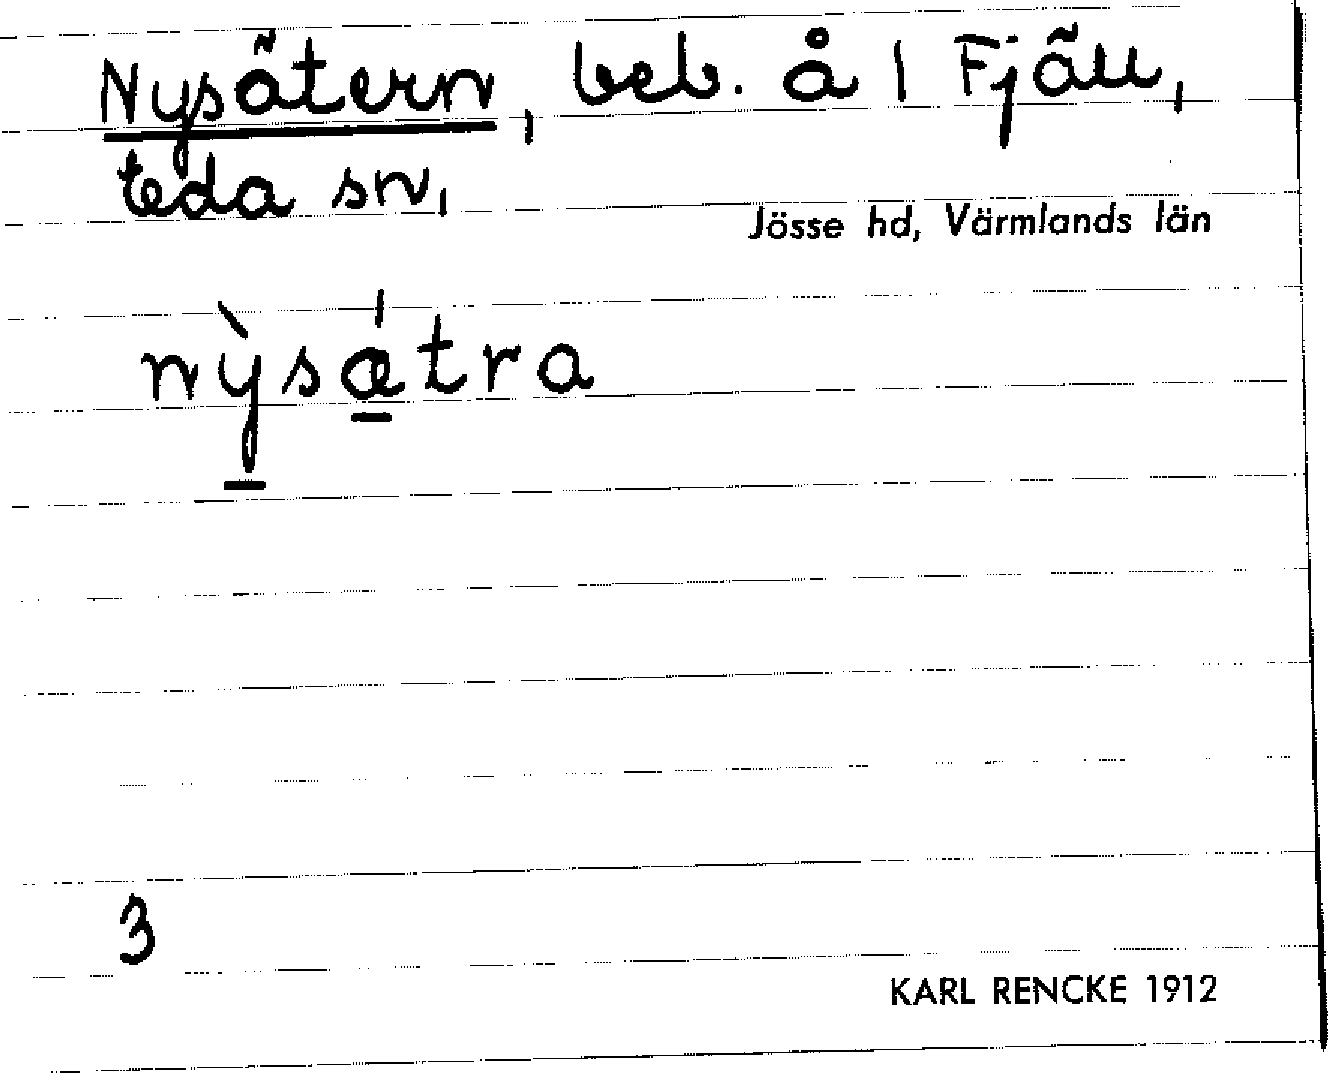 Nysätern, beb. å 1 Fjäll,
teda sn,
Jösse hd, Värmlands län
nỳsǽtra
3
KARL RENCKE 1912